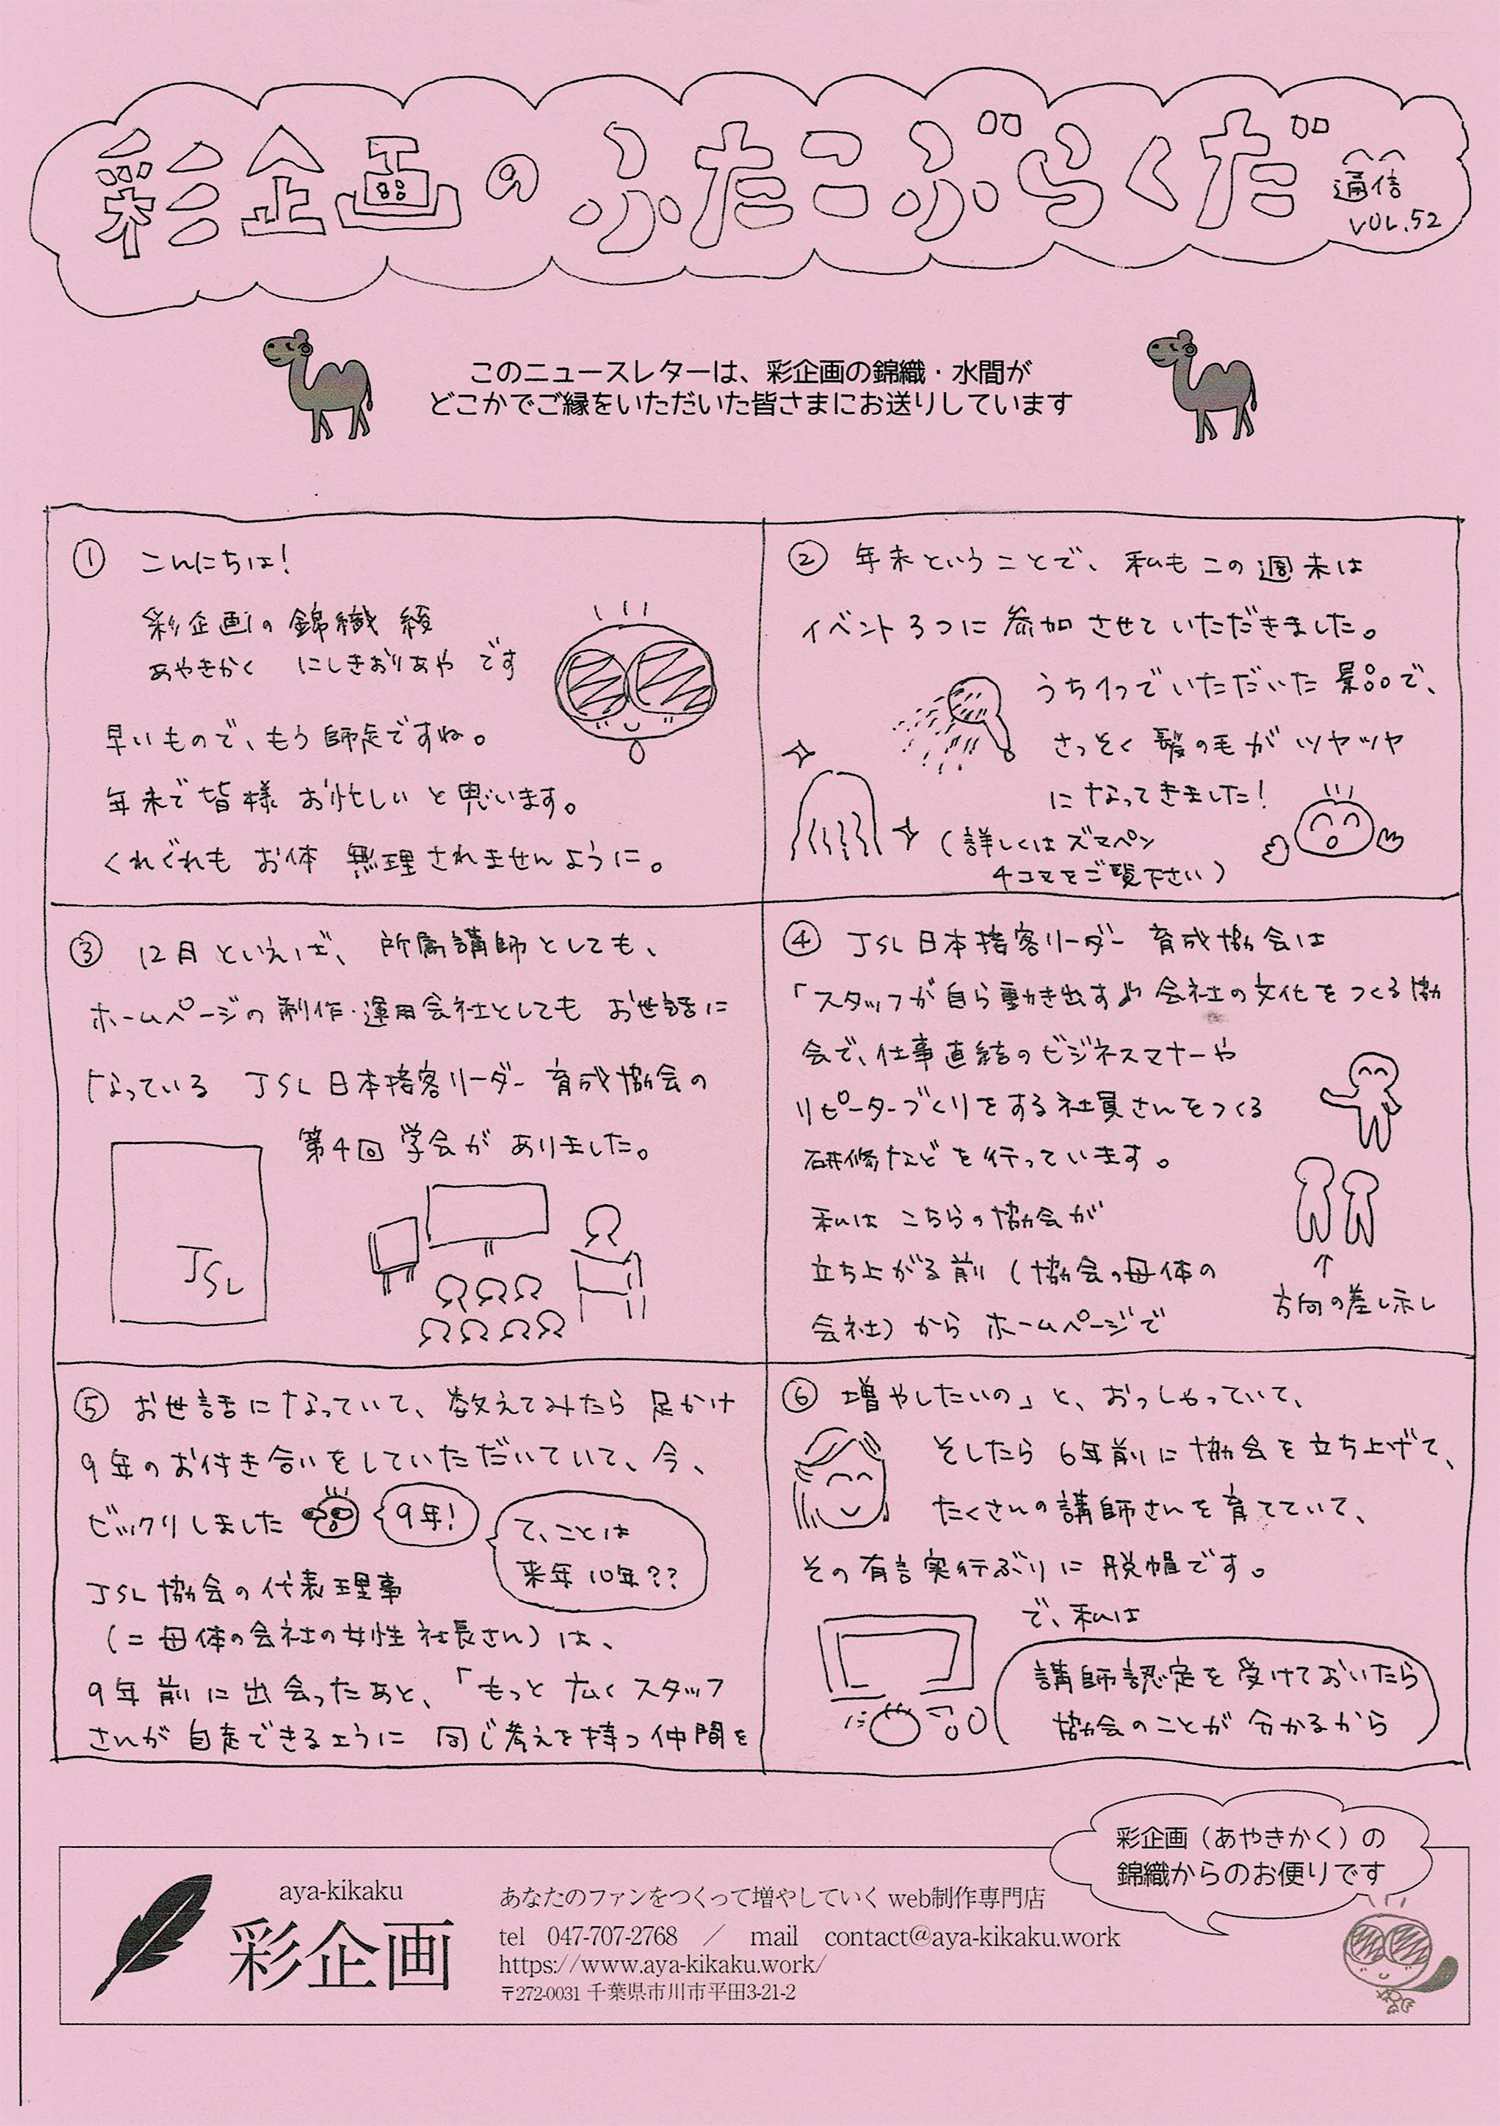 彩企画のふたこぶらくだ 通信
VOL.52
このニュースレターは、彩企画の錦織・水間が
どこかでご縁をいただいた皆さまにお送りしています
① こんにちは!
彩企画の 錦織 綾
あやきかく にしきおりあや です
早いもので、もう師走ですね。
年末で皆様 お忙しいと思います。
くれぐれも お体 無理されませんように。
② 年末ということで、私もこの週末は
イベント3つに参加させていただきました。
うち1つでいただいた景品で、
さっそく髪の毛がツヤツヤ
になってきました!
(詳しくはズマペン
4コマをご覧下さい)
③ 12月といえば、所属講師としても、
ホームページの制作・運用会社としても お世話に
なっている JSL日本接客リーダー育成協会の
第4回学会が ありました。
JSL
④ JSL日本接客リーダー育成協会は
「スタッフが自ら動き出す♪」会社の文化をつくる協
会で、仕事直結のビジネスマナーや
リピーターづくりをする社員さんをつくる
研修などを行っています。
私は こちらの協会が
立ち上がる前(協会の母体の
会社)から ホームページで
↑
方向の差し示し
⑤ お世話になっていて、数えてみたら足かけ
9年のお付き合いをしていただいていて、今、
ビックリしました
9年!
て、ことは
来年10年??
JSL協会の代表理事
(=母体の会社の女性社長さん)は、
9年前に出会ったあと、「もっと広くスタッフ
さんが自走できるように 同じ考えを持つ仲間を
⑥ 増やしたいの」と、おっしゃっていて、
そしたら 6年前に協会を立ち上げて、
たくさんの講師さんを育てていて、
その有言実行ぶりに脱帽です。
で、私は
講師認定を受けておいたら
協会のことが分かるから
彩企画(あやきかく)の
錦織からのお便りです
aya-kikaku
彩企画
あなたのファンをつくって増やしていく web制作専門店
tel 047-707-2768 / mail contact@aya-kikaku.work
https://www.aya-kikaku.work/
〒272-0031 千葉県市川市平田3-21-2